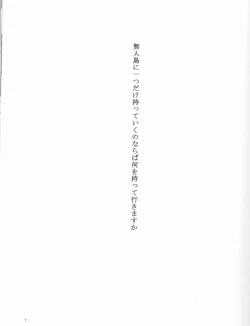 無人島に一つだけ持っていくのならば何を持って行きますか